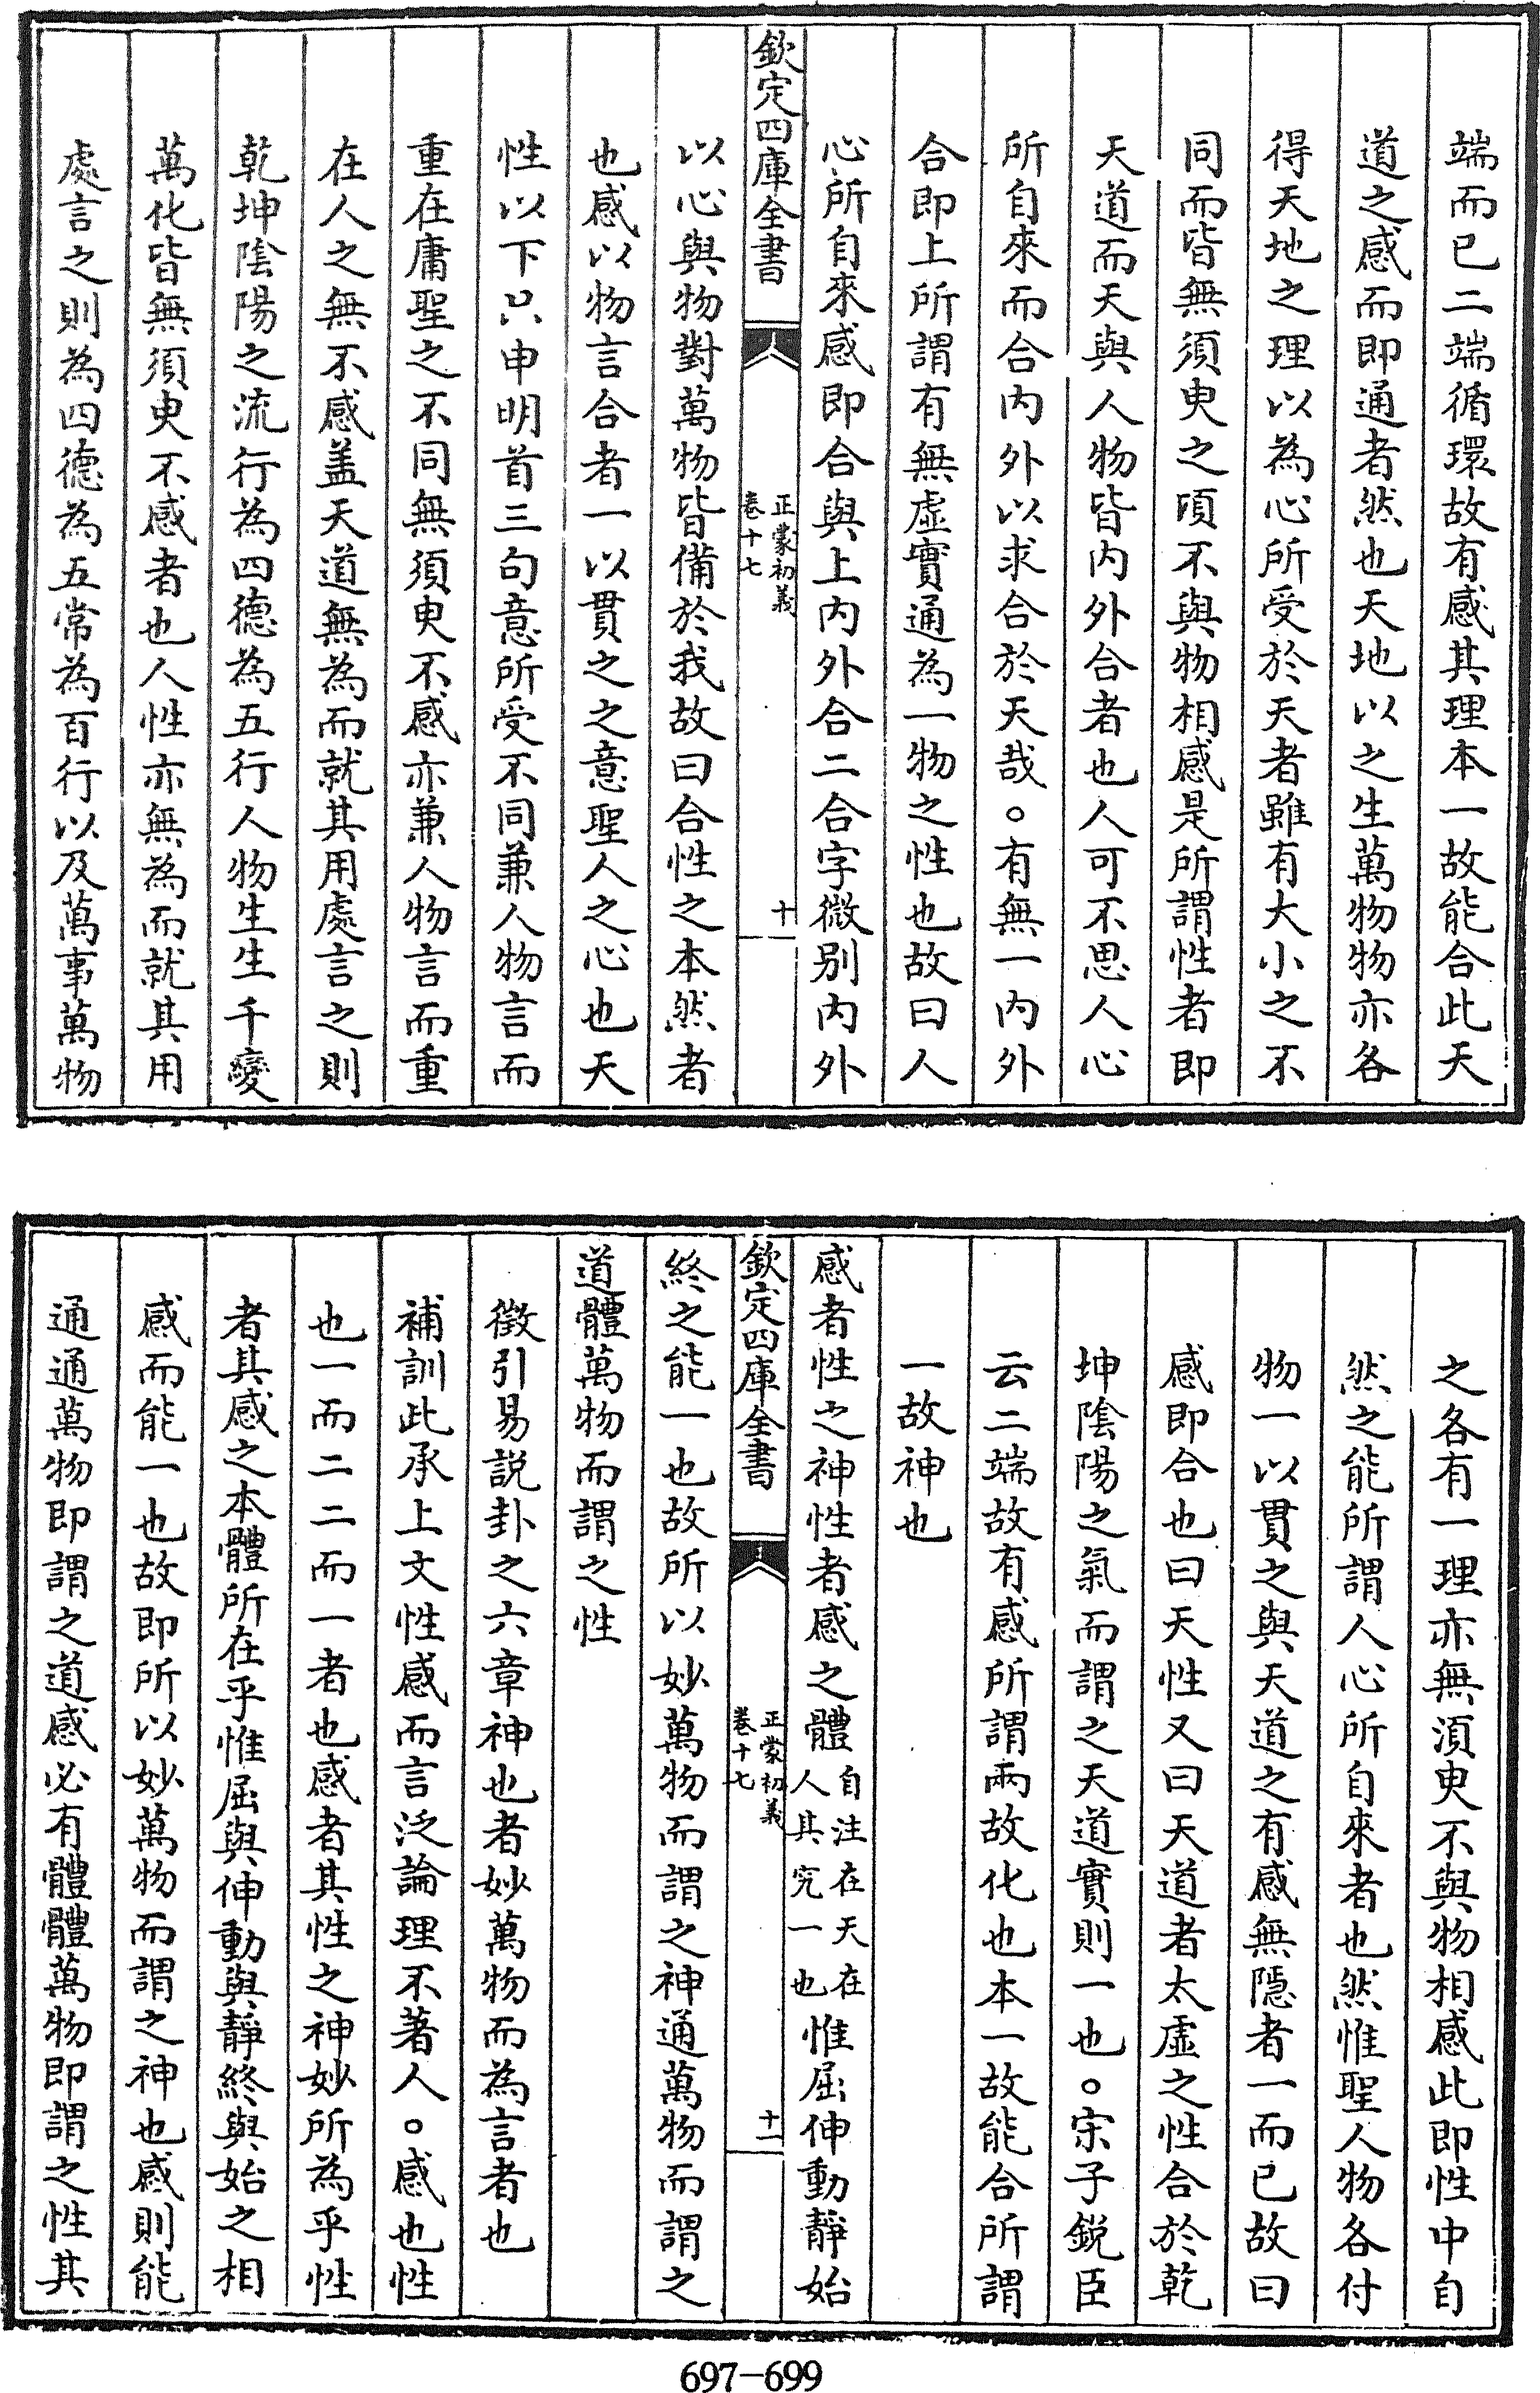 端而已二端循環故有感其理本一故能合此天
道之感而即通者然也天地以之生萬物物亦各
得天地之理以為心所受於天者雖有大小之不
同而皆無須臾之頃不與物相感是所謂性者即
天道而天與人物皆内外合者也人可不思人心
所自來而合内外以求合於天哉。有無一内外
合即上所謂有無虛實通為一物之性也故曰人
心所自來感即合與上内外合二合字微别内外
欽定四庫全書
正蒙初義
卷十七
十
以心與物對萬物皆備於我故曰合性之本然者
也感以物言合者一以貫之之意聖人之心也天
性以下只申明首三句意所受不同兼人物言而
重在庸聖之不同無須臾不感亦兼人物言而重
在人之無不感盖天道無為而就其用處言之則
乾坤陰陽之流行為四德為五行人物生生千變
萬化皆無須臾不感者也人性亦無為而就其用
處言之則為四德為五常為百行以及萬事萬物
之各有一理亦無須臾不與物相感此即性中自
然之能所謂人心所自來者也然惟聖人物各付
物一以貫之與天道之有感無隱者一而已故曰
感即合也曰天性又曰天道者太虛之性合於乾
坤陰陽之氣而謂之天道實則一也。宋子鋭臣
云二端故有感所謂兩故化也本一故能合所謂
一故神也
感者性之神性者感之體自注在天在人其究一也惟屈伸動靜始
欽定四庫全書
正蒙初義
卷十七
十一
終之能一也故所以妙萬物而謂之神通萬物而謂之
道體萬物而謂之性
徵引易説卦之六章神也者妙萬物而為言者也
補訓此承上文性感而言泛論理不著人。感也性
也一而二二而一者也感者其性之神妙所為乎性
者其感之本體所在乎惟屈與伸動與靜終與始之相
感而能一也故即所以妙萬物而謂之神也感則能
通通萬物即謂之道感必有體體萬物即謂之性其
697-699